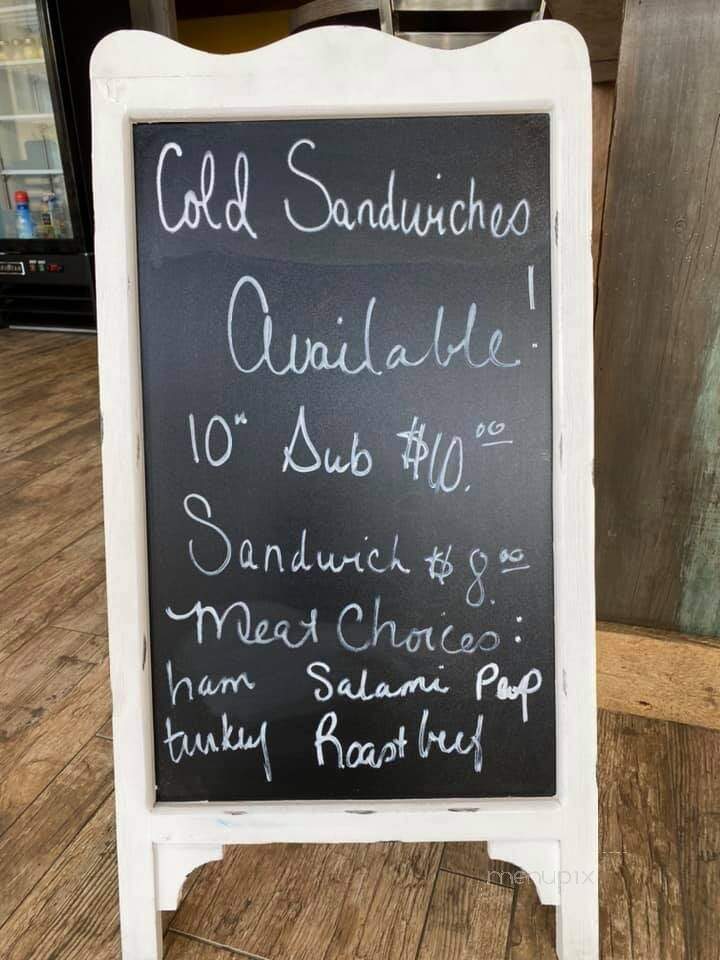 Cold Sandwiches
Available!
10" Sub $10.00
Sandwich $8.00
Meat Choices:
ham Salami Pepp
turkey Roast beef
menupix